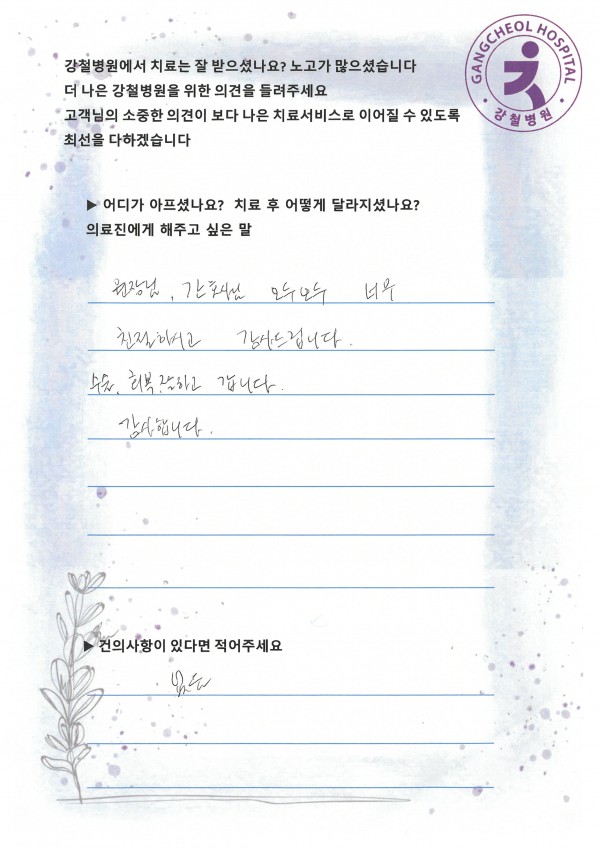 GANGCHEOL HOSPITAL
강철병원
강철병원에서 치료는 잘 받으셨나요? 노고가 많으셨습니다
더 나은 강철병원을 위한 의견을 들려주세요
고객님의 소중한 의견이 보다 나은 치료서비스로 이어질 수 있도록
최선을 다하겠습니다
▶ 어디가 아프셨나요? 치료 후 어떻게 달라지셨나요?
의료진에게 해주고 싶은 말
원장님, 간호사님 모두모두 너무
친절하시고 감사드립니다.
수술, 회복 잘하고 갑니다.
감사합니다.
▶ 건의사항이 있다면 적어주세요
없음